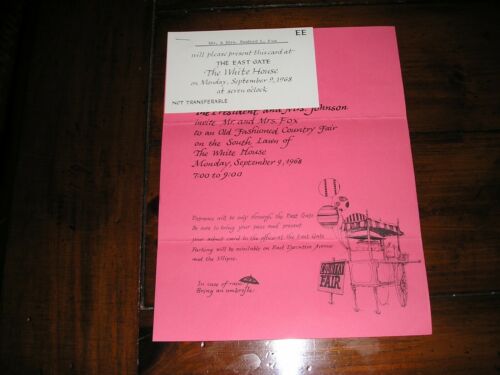 EE
Mr. & Mrs. Sanford L. Fox
will please present this card at
THE EAST GATE
The White House
on Monday, September 9, 1968
at seven o'clock
NOT TRANSFERABLE
The President and Mrs. Johnson
invite Mr. and Mrs. Fox
to an Old Fashioned Country Fair
on the South Lawn of
The White House
Monday, September 9, 1968
7:00 to 9:00
Entrance will be only through the East Gate.
Be sure to bring your pass and present
your admit card to the officer at the East Gate
Parking will be available on East Executive Avenue
and the Ellipse.
In case of rain:
Bring an umbrella.
COUNTRY
FAIR